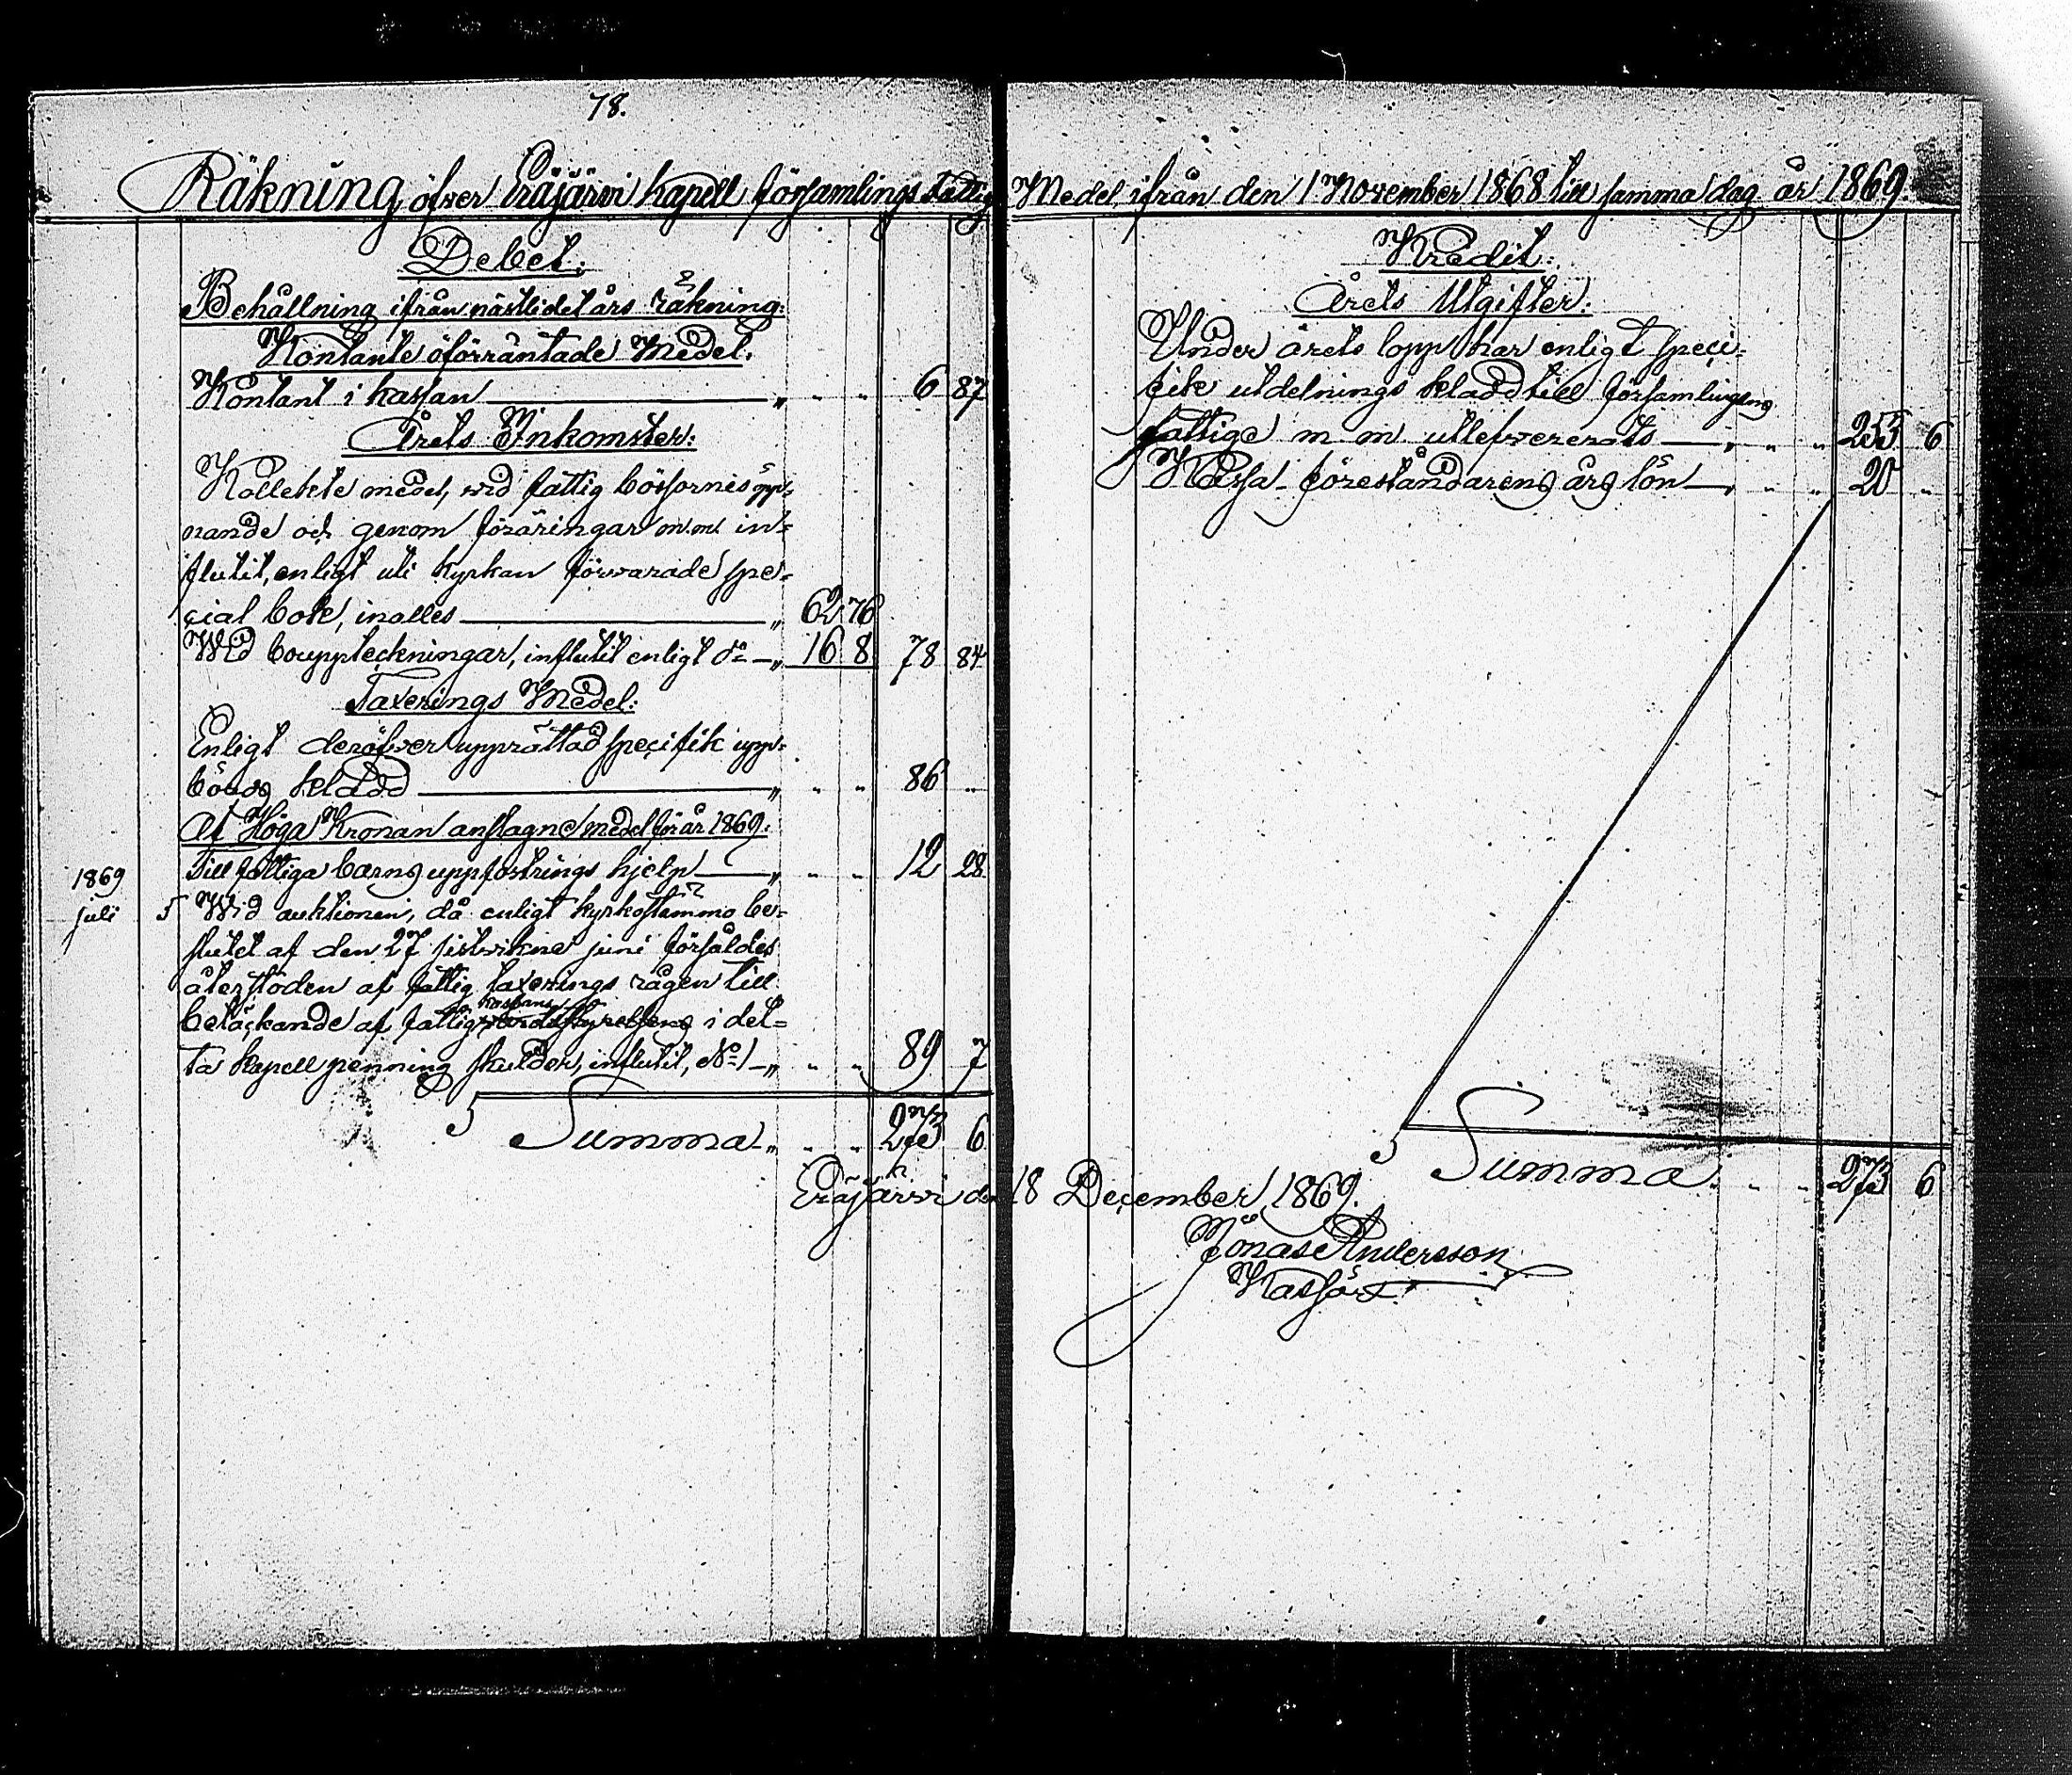 78.
Räkning öfver Eräjärvi kapell församlings Fattig Medel, ifrån den 1 November 1868 till samma dag år 1869.
Debet:
Behållning ifrån nästlidet års räkning:
Kontante oförräntade Medel.
Kontant i kassan „ „ „ 6 87
Årets Inkomster:
Kollekte medel, vid fattig bössornes öpp-
nande och genom föräringar m.m. in-
flutit, enligt uti kyrkan förvarade spe-
cial bok, inalles „ 62 76
Wid bouppteckningar, influtit enligt do „ 16 8 78 84
Taxerings Medel:
Enligt deröfver upprättad specifik upp-
börds kladd „ „ „ 86 „
Af Höga Kronan anslagne medel för år 1869:
Till fattiga barns uppfostrings hjelp „ „ „ 12 28
1869
juli 5 Wid auktionen, då enligt kyrkostämmo be-
slutet af den 27 sistvikne juni försåldes
återstoden af fattig taxerings rågen till
kassans
betäckande af fattigvårdsstyrelsens i det-
ta kapell penning skulder, influtit, No 1 „ „ „ 89 7
Summa „ „ „ 273 6
Kredit:
Årets Utgifter:
Under årets lopp har enligt speci-
fik utdelnings kladd till församlingens
fattige m m utlefvererats „ „ „ 253 6
Kassa-föreståndarens års lön „ „ „ 20 „
Summa „ „ „ 273 6
Eräjärvi den 18 December 1869.
Jonas Andersson
Kassör